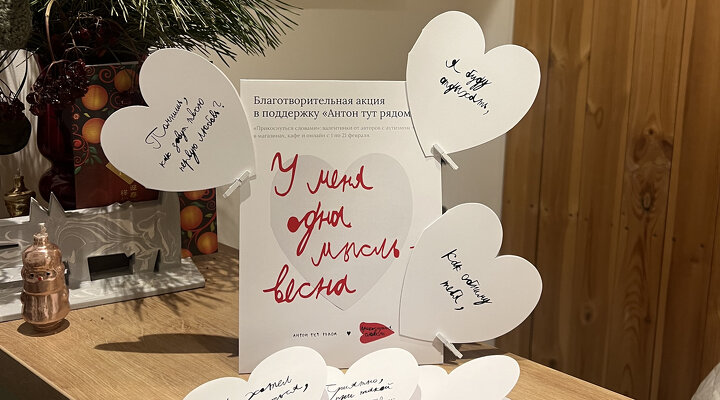 Благотворительная акция
в поддержку «Антон тут рядом
«Прикоснуться словами»: валентинки от авторов с аутизмом
в магазинах, кафе и онлайн с 1 по 21 февраля
У меня
одна
мысль-
весна
АНТОН ТУТ РЯДОМ
Помнишь,
как зовут твою
первую любовь?
Я буду
отдыхать,
Как обниму
тебя,
хотел
Приятно,
при такой